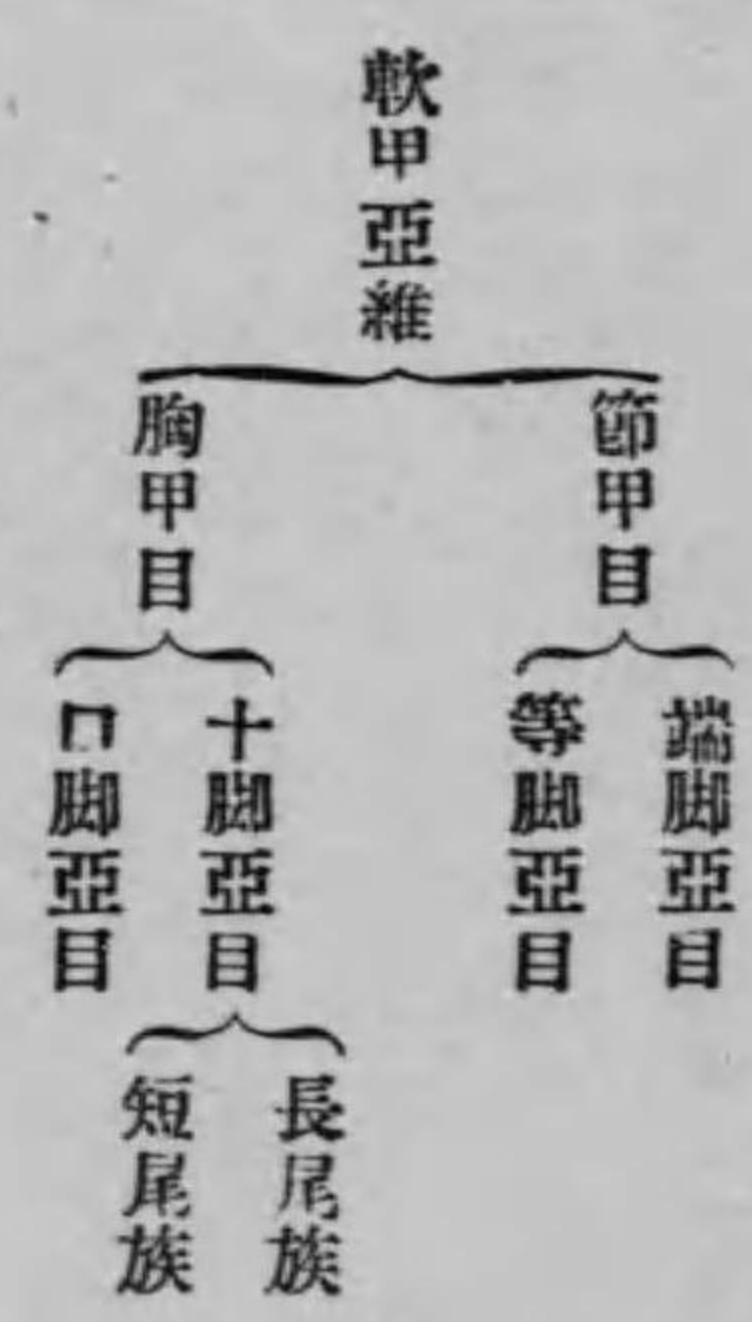 軟甲亞維
節甲目
端脚亞目
等脚亞目
胸甲目
十脚亞目
長尾族
短尾族
口脚亞目